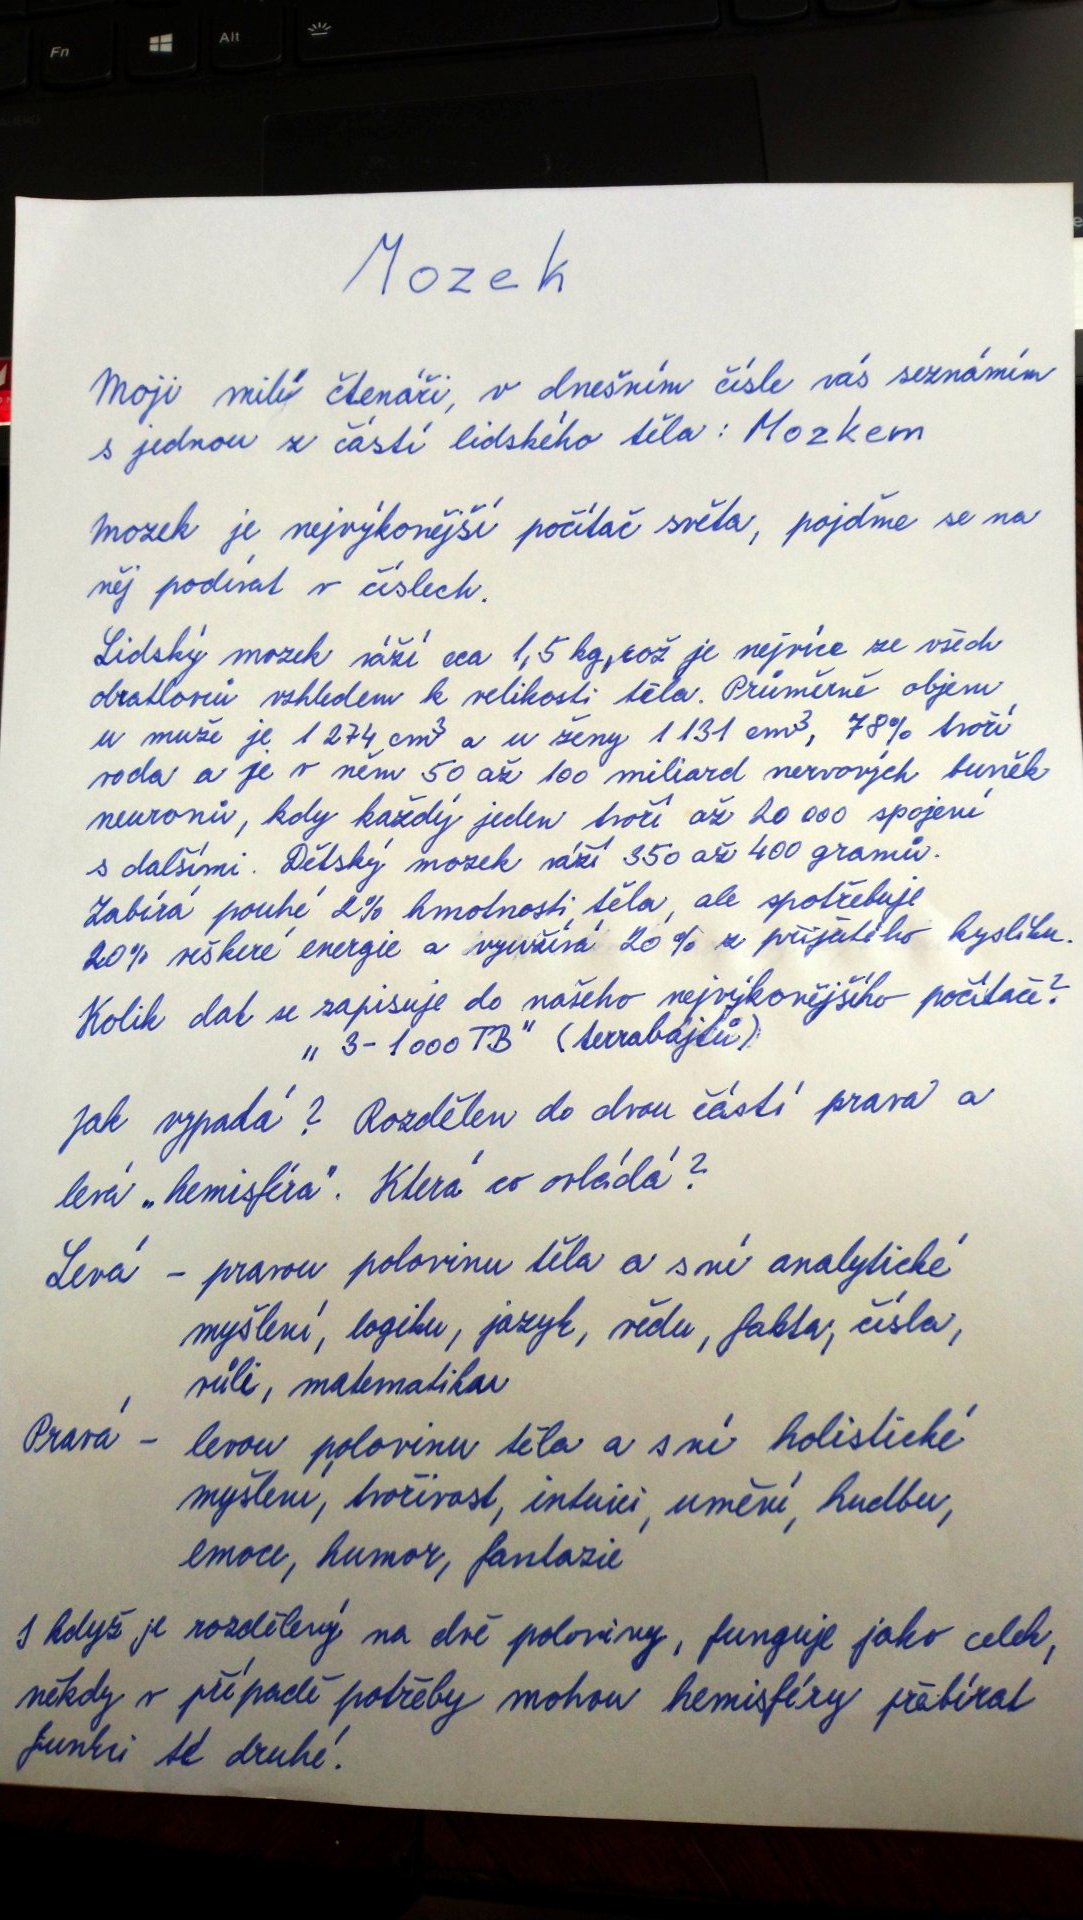 Fn
Alt
Mozek
Moji milý čtenáři, v dnešním čísle vás seznámím
s jednou z částí lidského těla: Mozkem
Mozek je nejvýkonější počítač světa, pojďme se na
něj podívat v číslech.
Lidský mozek váží cca 1,5 kg, což je nejvíce ze všech
obratlovců vzhledem k velikosti těla. Průměrně objem
u muže je 1 274 cm³ a u ženy 1 131 cm³, 78% tvoří
voda a je v něm 50 až 100 miliard nervových buněk
neuronů, kdy každý jeden tvoří až 20 000 spojení
s dalšími. Dětský mozek váží 350 až 400 gramů.
Zabírá pouhé 2% hmotnosti těla, ale spotřebuje
20% veškeré energie a využívá 20% z přijatého kyslíku.
Kolik dat se zapisuje do našeho nejvýkonějšího počítače?
„ 3-1000 TB" (terrabajtů)
Jak vypadá? Rozdělen do dvou částí pravá a
levá „hemisféra". Která co ovládá?
Levá - pravou polovinu těla a s ní analytické
myšlení, logiku, jazyk, vědu, fakta, čísla,
vůli, matematiku
Pravá - levou polovinu těla a s ní holistické
myšlení, tvořivost, intuici, umění, hudbu,
emoce, humor, fantazie
I když je rozdělený na dvě poloviny, funguje jako celek,
někdy v případě potřeby mohou hemisféry přebírat
funkci té druhé.